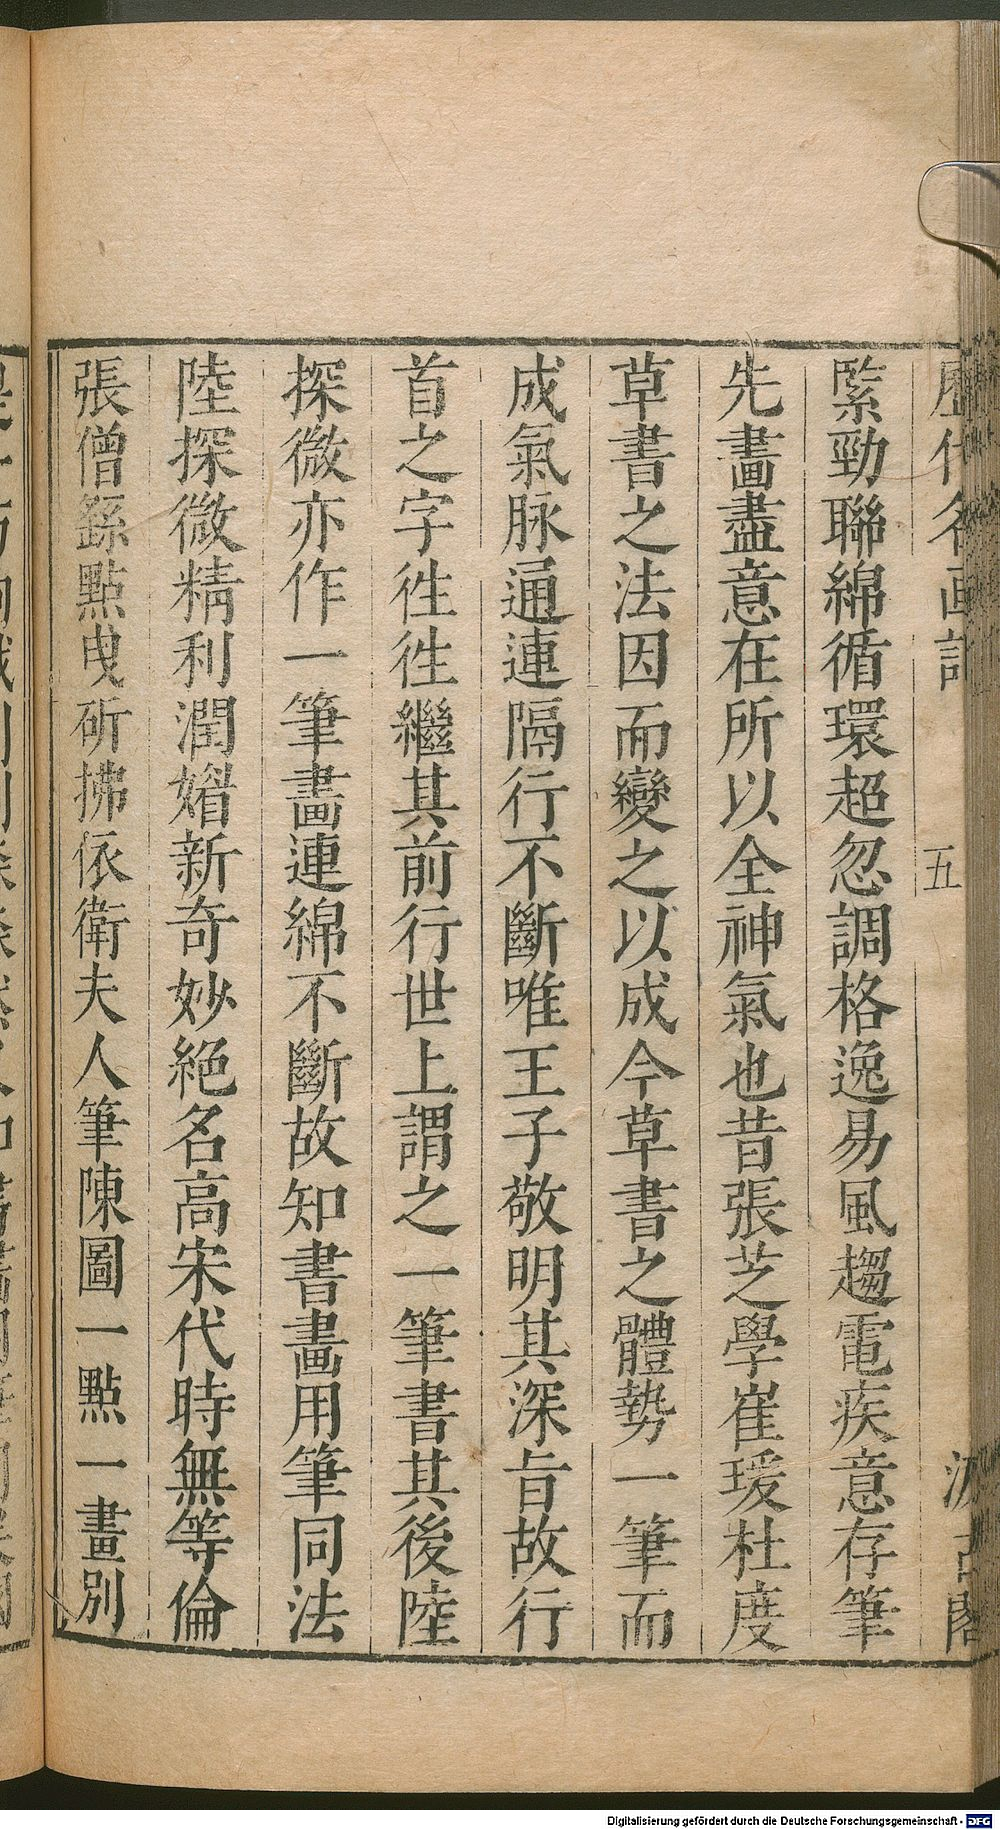 歷代名画記 五 汲古閣
緊勁聯綿循環超忽調格逸易風趨電疾意存筆
先畫盡意在所以全神氣也昔張芝學崔瑗杜度
草書之法因而變之以成今草書之體勢一筆而
成氣脉通連隔行不斷唯王子敬明其深旨故行
首之字徃徃繼其前行世上謂之一筆書其後陸
探微亦作一筆畫連綿不斷故知書畫用筆同法
陸探微精利潤媚新奇妙絕名高宋代時無等倫
張僧繇點曵斫拂依衛夫人筆陳圖一點一畫別
Digitalisierung gefördert durch die Deutsche Forschungsgemeinschaft - DFG